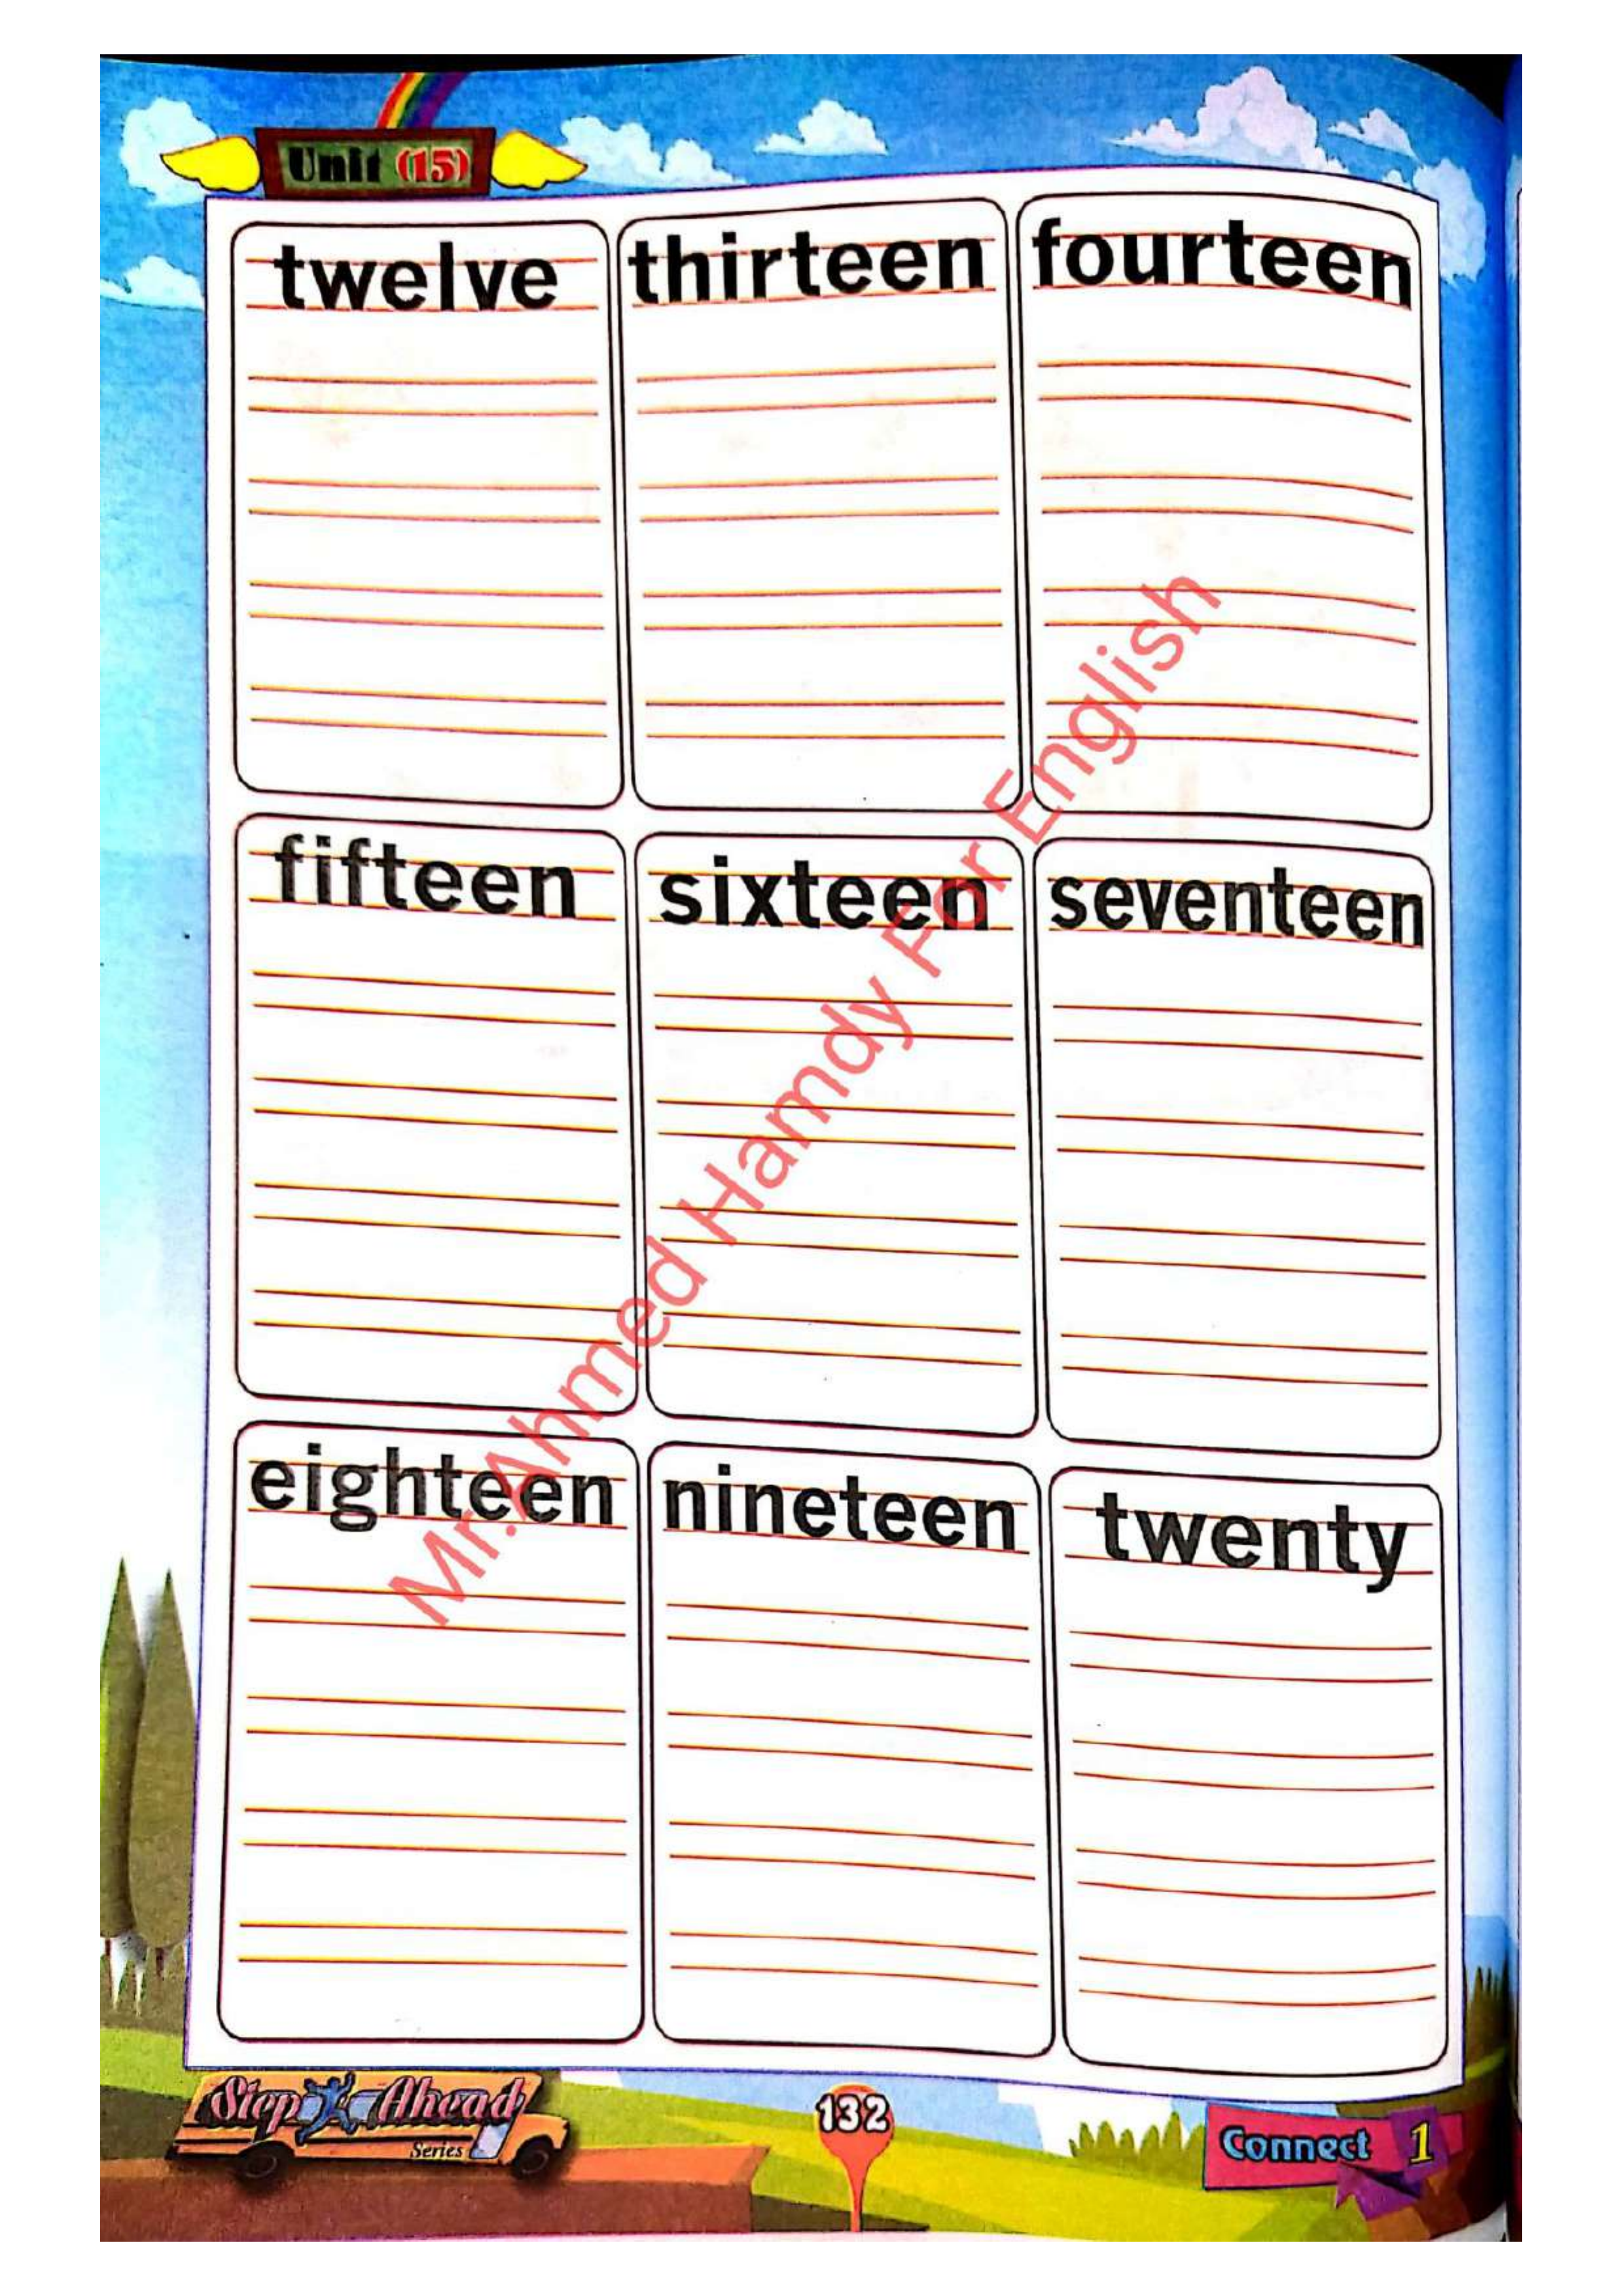 Unit (15)
twelve thirteen fourteen
fifteen sixteen seventeen
eighteen nineteen twenty
Mr.Ahmed Hamdy For English
Step Ahead
Series
132
Connect 1